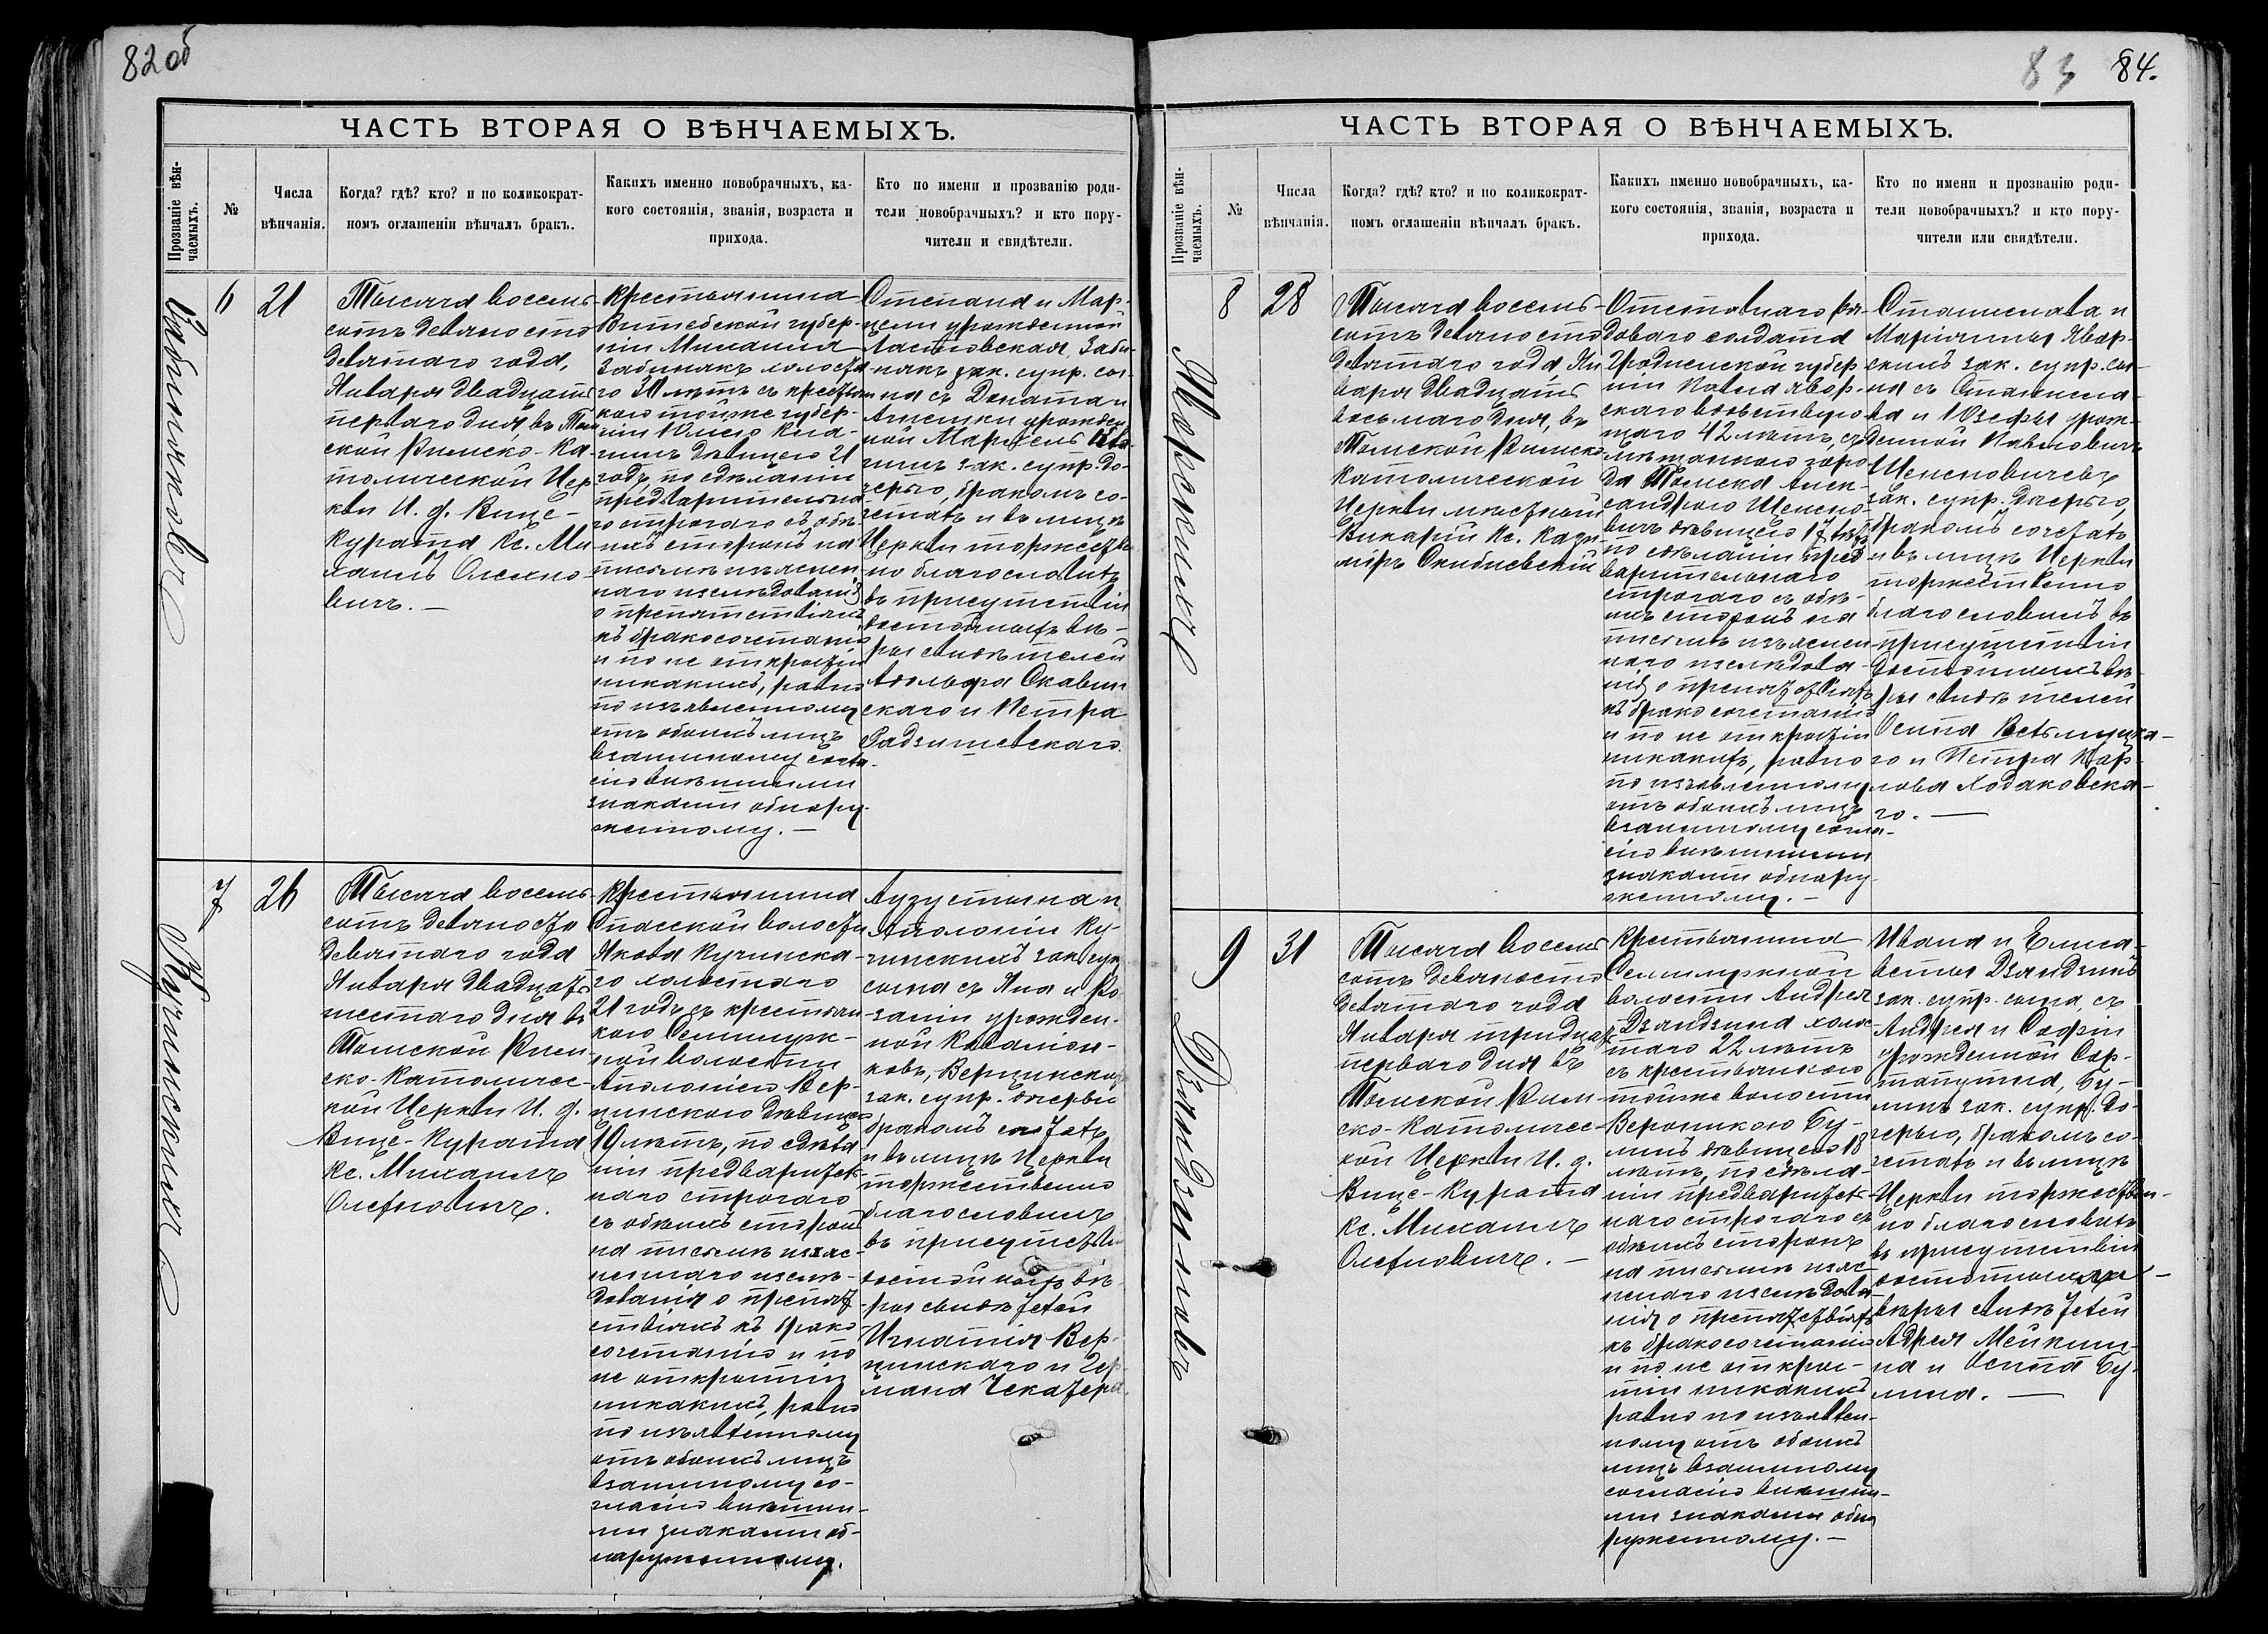 82об
ЧАСТЬ ВТОРАЯ О ВѢНЧАЕМЫХЪ.
Прозваніе вѣн-
чаемыхъ.
№
Числа
вѣнчанія.
Когда? гдѣ? кто? и по коликократ-
номъ оглашеніи вѣнчалъ бракъ.
Какихъ именно новобрачныхъ, ка-
кого состоянія, званія, возраста и
прихода.
Кто по имени и прозванію роди-
тели новобрачныхъ? и кто пору-
чители и свидѣтели.
6
21
Тысяча восемь-
сотъ девяносто
девятаго года,
Января двадцать
перваго дня въ Том
ской Римско-Ка-
толической Цер
кви И. д. Вице-
Курата Кс. Ми
хаилъ Олехно-
вичъ.—
Крестьянина
Витебской губер-
ніи Михаила
Забинякъ холоста
го 30 лѣтъ съ крестьян
кою тойже губер-
ніи
дѣвицею 21
годъ, по сдѣланіи
предварительна
го строгаго съ обѣ
ихъ сторонъ на
письмѣ изъяснен
наго изслѣдованія
о препятствіяхъ
къ бракосочетанію
и по не открытіи
никакихъ, равно
по изъявленному
отъ обоихъ лицъ
взаимному согла-
сію внѣшними
знаками обнару-
женному.—
Степана и Мар-
цели урожденной
Заби-
някъ зак. супр. сы-
на съ Доната и
Агнешки урожден
ной
зак. супр. до-
черью, бракомъ со-
четалъ и въ лицѣ
Церкви торжествен
но благословилъ
въ присутствіи
достойныхъ вѣ-
ры свидѣтелей
Адольфа Скавин
скаго и Петра
Радзишевскаго.
7
26
Кучинскіе
Тысяча восемь-
сотъ девяносто
девятаго года
Января двадцать
шестаго дня въ
Томской Рим-
ско-Католичес-
кой Церкви И. д.
Вице-Курата
Кс. Михаилъ
Олехновичъ.
Крестьянина
Спасской волости
Якова Кучинска-
го холостаго
21 годъ съ крестьян
кою Семилуж-
ной волости
Аполоніею Вер-
цинскою дѣвицею
19 лѣтъ, по сдѣла
ніи предваритель
наго строгаго
съ обѣихъ сторонъ
на письмѣ изъяс-
неннаго изслѣ-
дованія о препят
ствіяхъ къ брако
сочетанію и по
не открытіи
никакихъ, равно
по изъявленному
отъ обоихъ лицъ
взаимному со-
гласію внѣшни-
ми знаками об-
наруженному.
Аугустына и
Аполоніи Ку-
чинскихъ зак. супр
сына съ Яна и Ро-
заліи урожден-
ной
Верцинских
зак. супр. дочерью
бракомъ сочеталъ
и въ лицѣ Церкви
торжественно
благословилъ
въ присутствіи
достойныхъ вѣ-
ры свидѣтелей
Игнатія Вер-
цинскаго и Гер
мана
83 84.
ЧАСТЬ ВТОРАЯ О ВѢНЧАЕМЫХЪ.
Прозваніе вѣн-
чаемыхъ.
№
Числа
вѣнчанія.
Когда? гдѣ? кто? и по коликократ-
номъ оглашеніи вѣнчалъ бракъ.
Какихъ именно новобрачныхъ, ка-
кого состоянія, званія, возраста и
прихода.
Кто по имени и прозванію роди-
тели новобрачныхъ? и кто пору-
чители или свидѣтели.
8
28
Яворскіе
Тысяча восемь-
сотъ девяносто
девятаго года Ян
варя двадцать
восьмаго дня, въ
Томской Римско
Католической
Церкви мѣстный
Викарій Кс. Кази
міръ Скибневскій
Отставнаго ря-
доваго солдата
Гродненской губер
ніи Павла Явор-
скаго вдовствую-
щаго 42 лѣтъ, съ
мѣщанкою горо
да Томска Алек-
сандрою Щепно-
вичъ дѣвицею 17 лѣтъ
по сдѣланіи пред
варительнаго
строгаго съ обѣ-
ихъ сторонъ на
письмѣ изъяснен
наго изслѣдова-
нія о препятствіяхъ
къ бракосочетанію
и по не открытіи
никакихъ, равно
по изъявленному
отъ обоихъ лицъ
взаимному согла-
сію внѣшними
знаками обнару-
женному.—
Станислава и
Маріанны Явор-
скихъ зак. супр. сы-
на съ Станисла-
ва и Юзефы урож-
денной Павловичъ
зак. супр. дочерью,
бракомъ сочеталъ
и въ лицѣ Церкви
торжественно
благословилъ въ
присутствіи
достойныхъ вѣ-
ры свидѣтелей
Осипа
го и Петра Кар-
лова Ходаковска-
го.—
9
31
Дзяндзиновъ
Тысяча восемь
сотъ девяносто
девятаго года
Января тридцать
перваго дня въ
Томской Рим-
ско-Католичес-
кой Церкви И. д.
Вице-Курата
Кс. Михаилъ
Олехновичъ.—
Крестьянина
Семилужной
волости Андрея
Дзяндзина холос
таго 22 лѣтъ
съ крестьянкою
тойже волости
Вероникою Бу-
линъ дѣвицею 18
лѣтъ, по сдѣла-
ніи предваритель
наго строгаго съ
обѣихъ сторонъ
на письмѣ изъяс-
неннаго изслѣдова
нія о препятствіяхъ
къ бракосочетанію
и по не откры-
тіи никакихъ
равно по изъявлен-
ному отъ обоихъ
лицъ взаимному
согласію внѣшни-
ми знаками обна
руженному.—
Ивана и Елиса-
веты Дзяндзинъ
зак. супр. сына, съ
Андрея и Софіи
урожденной
Бу-
линъ зак. супр. до-
черью, бракомъ со-
четалъ и въ лицѣ
Церкви торжествен-
но благословилъ
въ присутствіи
достойныхъ
вѣры свидѣтелей
Адрея
на и Осипа Бу-
лина.—